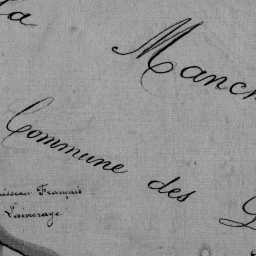 la
Manch
Commune des
isseau Français
Vainerage